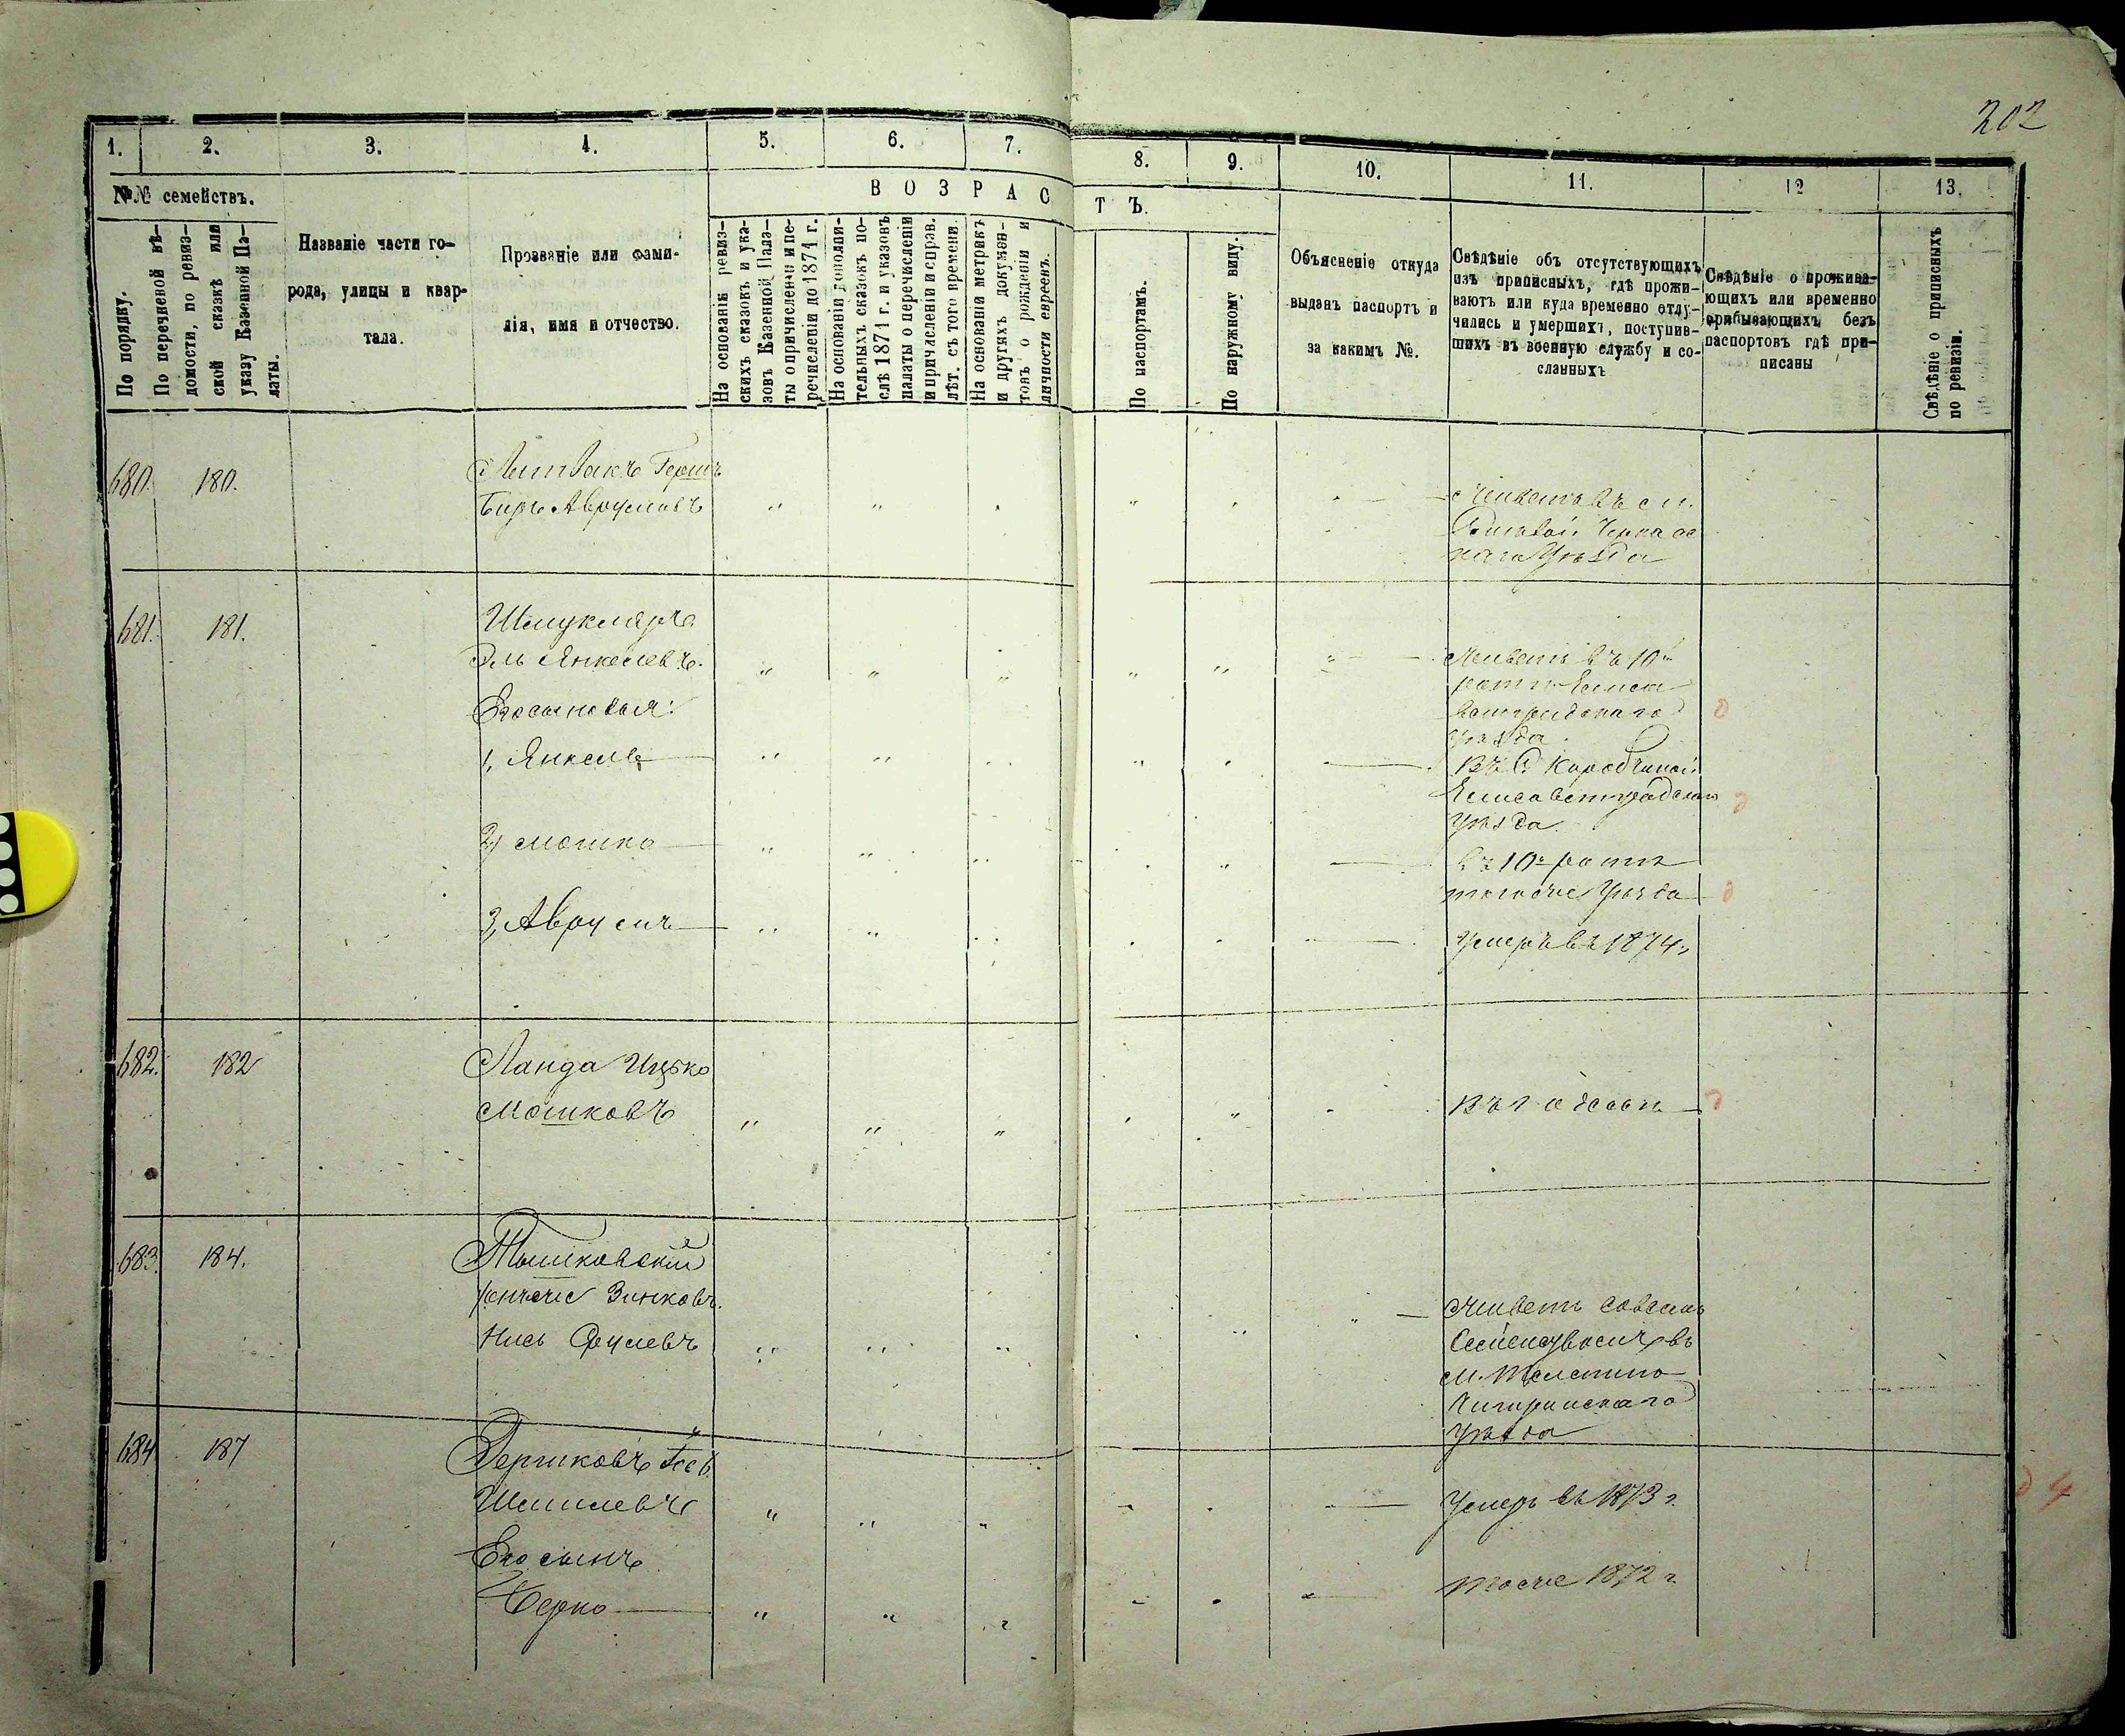 202
1. 2. 3. 4. 5. 6. 7. 8. 9. 10. 11. 12 13.
№№ семействъ.
По порядку.
По перечневой вѣ-
домости, по ревиз-
ской сказкѣ или
указу Казенной Па-
латы.
Названіе части го-
рода, улицы и квар-
тала.
Прозваніе или фами-
лія, имя и отчество.
ВОЗРАСТЪ.
На основаніи ревиз-
скихъ сказокъ и ука-
зовъ Казенной Пала-
ты о причисленіи и пе-
речисленіи до 1871 г.
На основаніи дополни-
тельныхъ сказокъ по-
слѣ 1871 г. и указовъ
палаты о перечисленіи
и причисленіи и справ.
лѣт. съ того времени.
На основаніи метрикъ
и другихъ докумен-
товъ о рожденіи и
личности евреевъ.
По паспортамъ.
По наружному виду.
Объясненіе откуда
выданъ паспортъ и
за какимъ №.
Свѣдѣніе объ отсутствующихъ
изъ приписныхъ, гдѣ прожи-
ваютъ или куда временно отлу-
чились и умершихъ, поступив-
шихъ въ военную службу и со-
сланныхъ
Свѣдѣніе о прожива-
ющихъ или временно
прибывающихъ безъ
паспортовъ гдѣ при-
писаны
Свѣдѣніе о приписныхъ
по ревизіи.
680. 180. Литвакъ Герш
Беръ Аврумовъ
Живетъ въ м.
Черкас
скаго Уѣзда
681. 181. Шмуклеръ
Эль Янкелевъ.
Живетъ въ 10й
ротѣ Елиса
Его сыновья:
ветградскаго
уѣзда.
1, Янкель
въ С.
Елисаветградскаго
уѣзда.
2, Мошко
въ 10й ротѣ
тогоже Уѣзда
3, Аврумъ
Умеръ въ 1874 г.
682. 182 Ланда Ицько
Мошковъ
въ г Одессѣ
683. 184. Тышковскій
Зинковъ.
Живетъ совсемъ
Нись Срулевъ
Семействомъ въ
м. Телепино
Чигиринскаго
уѣзда
684 187 Бершковъ
Шмилевъ
Умеръ въ 1873 г.
Его сынъ
Берко
тоже 1872 г.